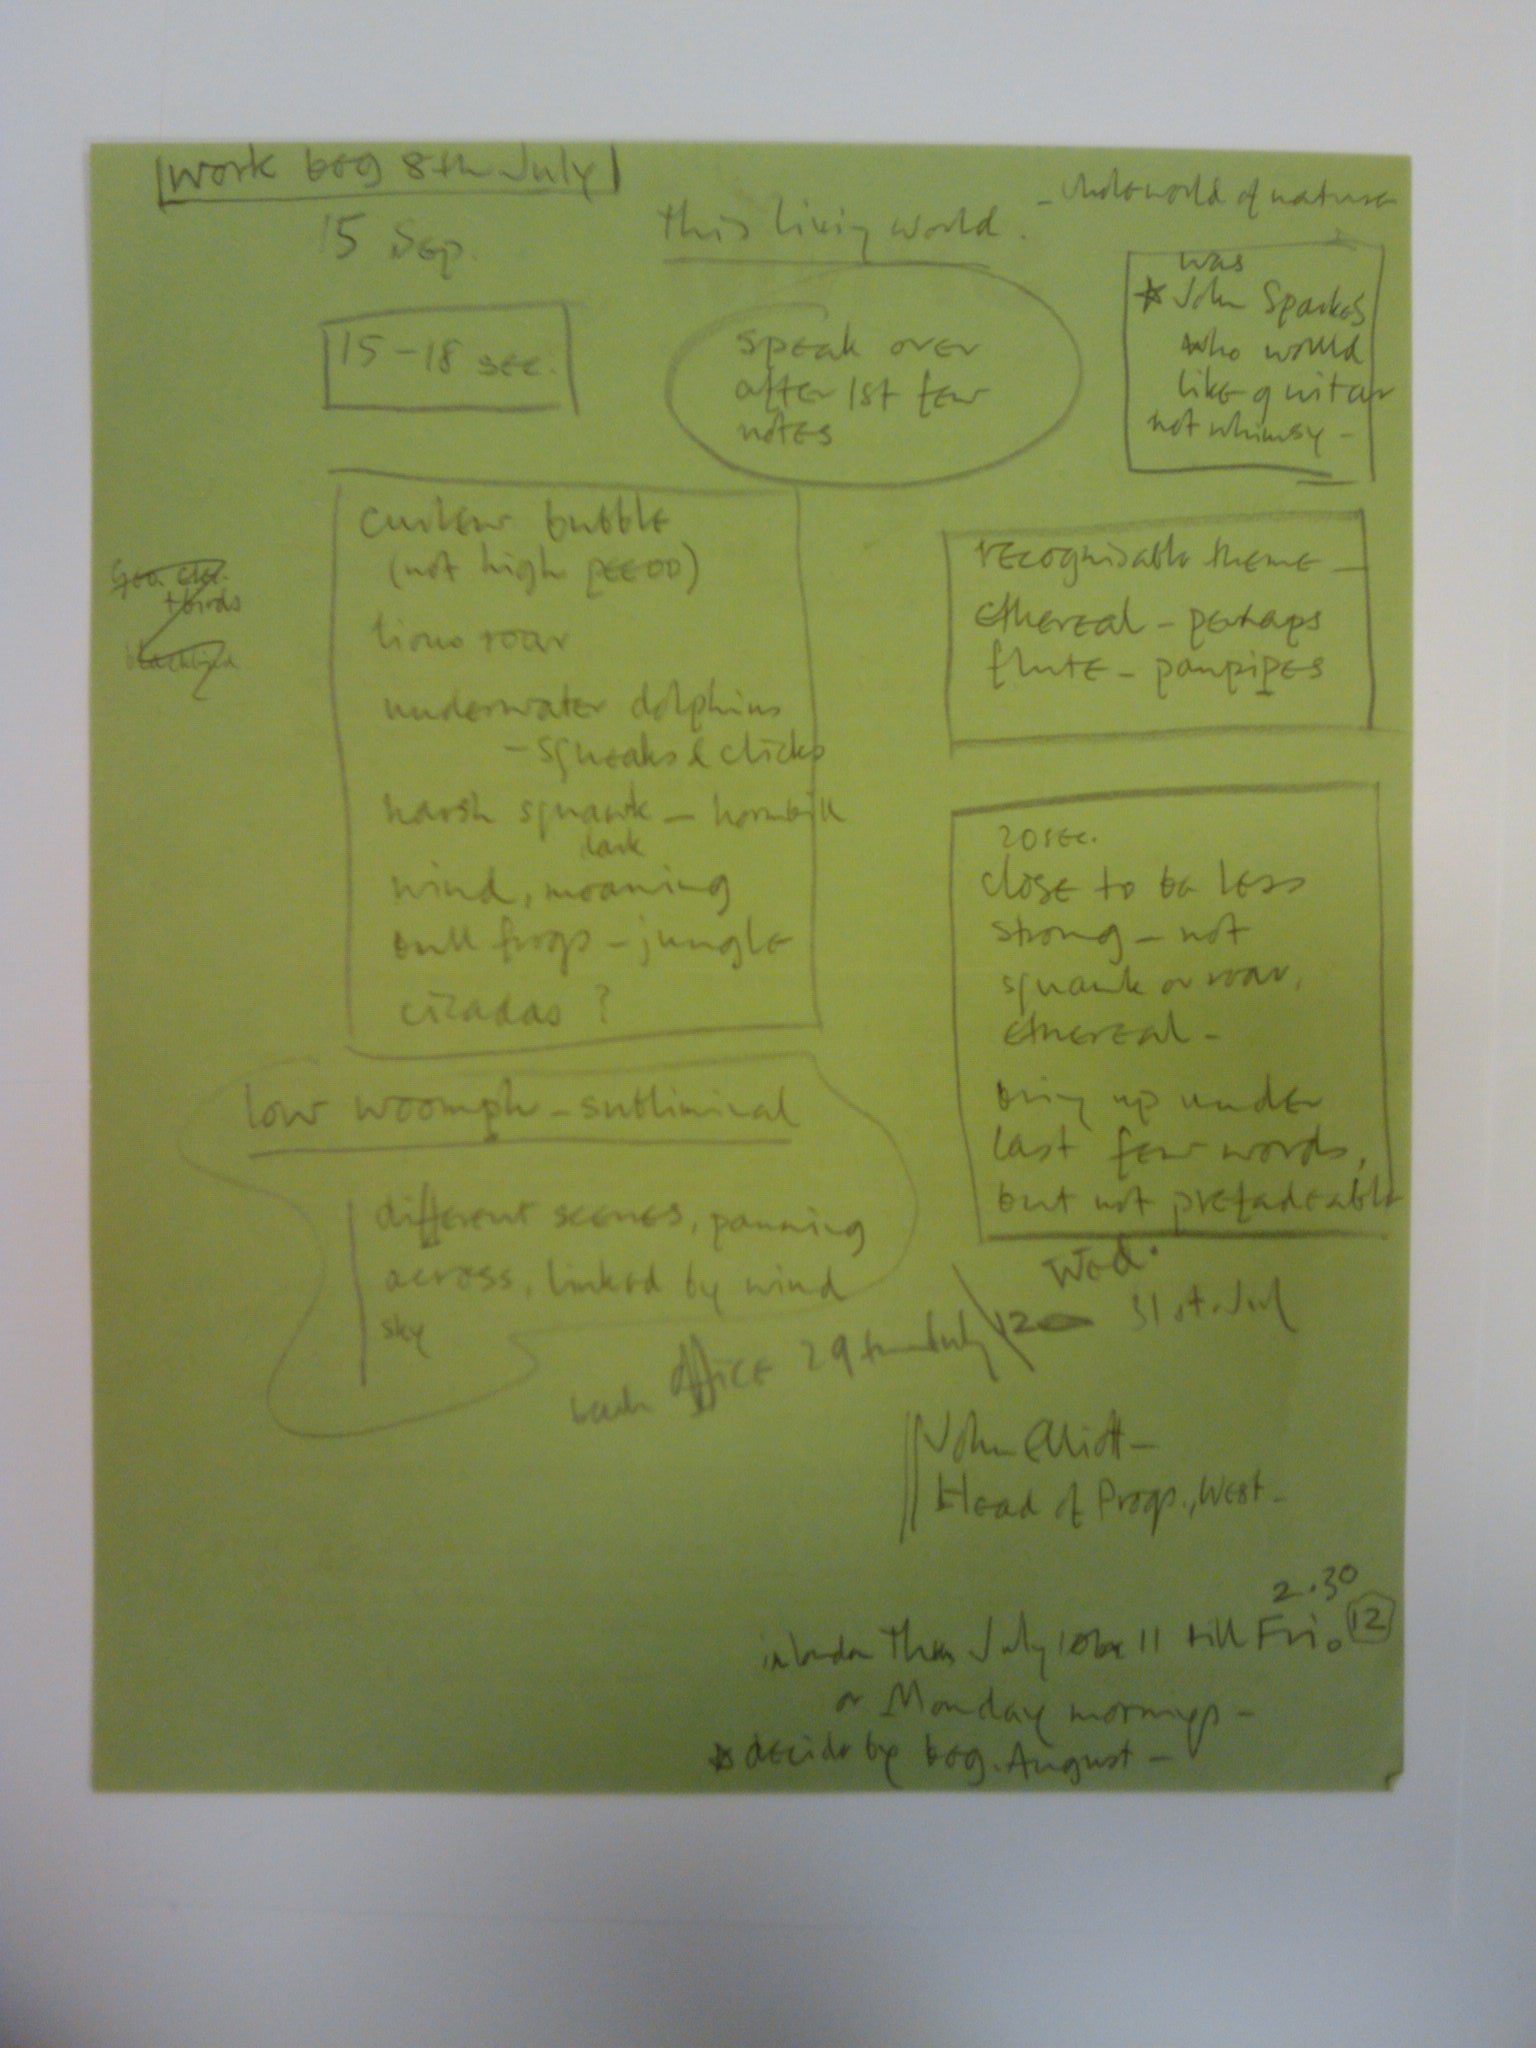 work beg 8th July
15 Sep.
this living world.
- Underworld of nature
15-18 sec.
speak over
after 1st few
notes
was
John Sparkes
who would
like guitar
not whimsy -
curlew bubble
(not high peeoo)
lions roar
underwater dolphins
- squeaks & clicks
harsh squawk - hornbill
dark
wind, moaning
bull frogs - jungle
cicadas ?
+ birds
blackbird
recognisable theme -
ethereal - perhaps
flute - panpipes
20 sec.
close to be less
strong - not
squawk or roar,
ethereal -
bring up under
last few words,
but not prefadeable
low woomph - subliminal
different scenes, panning
across, linked by wind
sky
back office 29th July
12
Wed.
31st Jul
John Elliott -
Head of Progs., West -
2.30
in London Thurs July 11 till Fri. 12
or Monday mornings -
decide by beg. August -